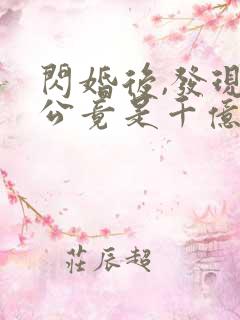 閃婚後,發現
公竟是千億
莊辰超